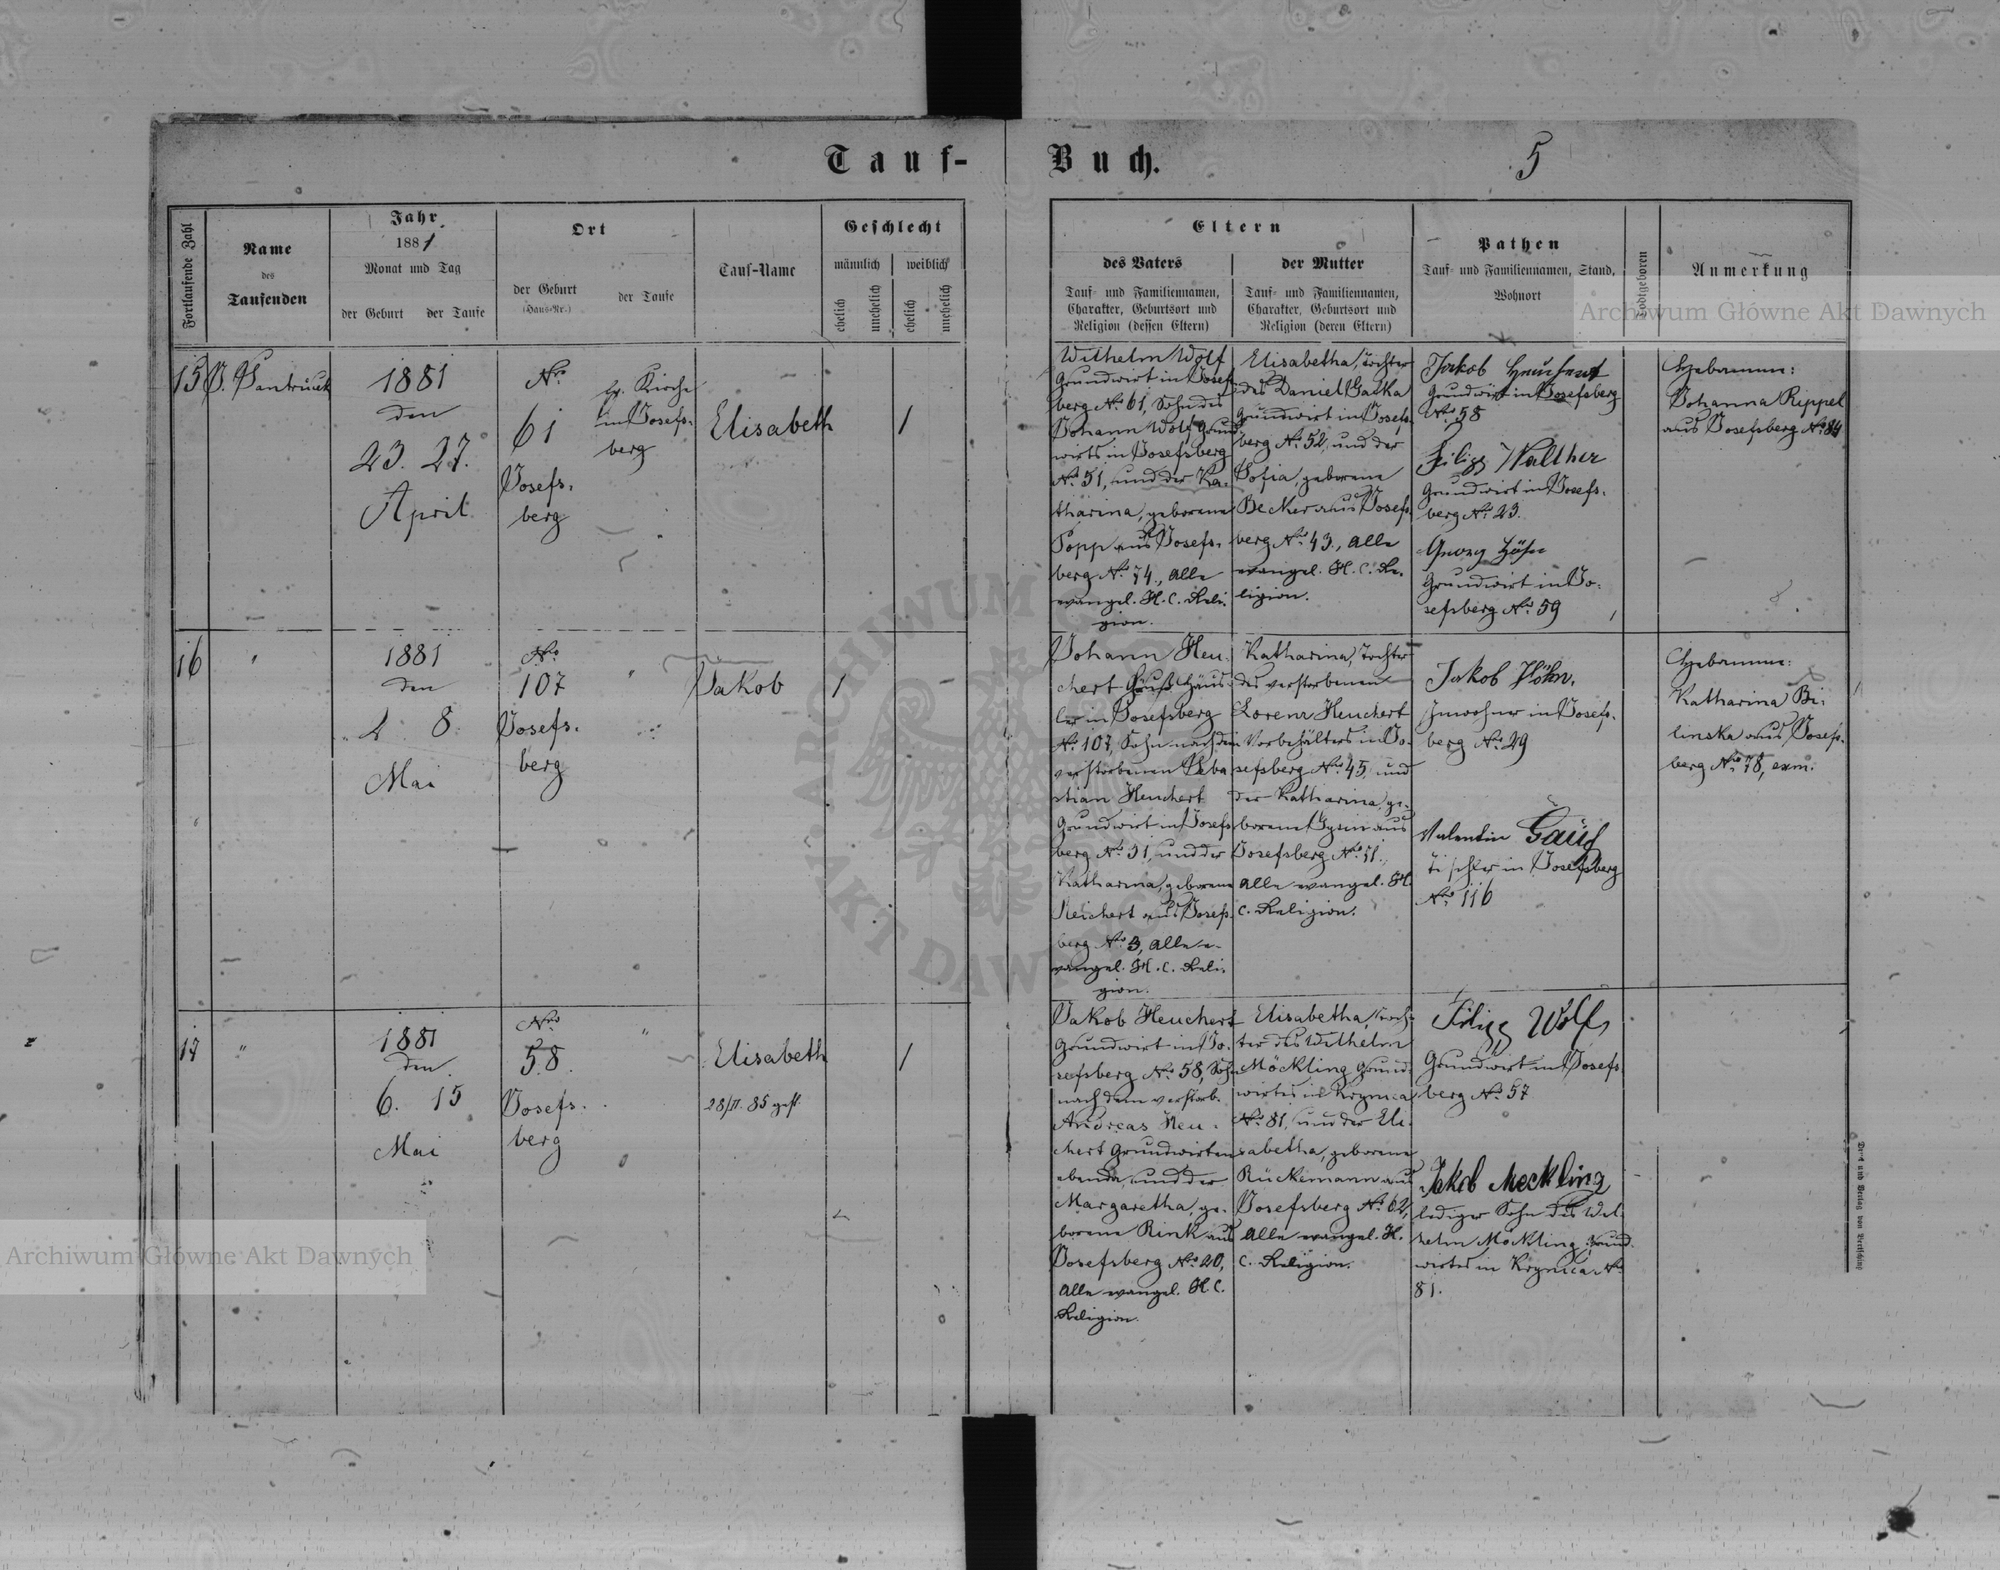 Tauf-
Buch.
5
Fortlaufende Zahl
Name
des
Taufenden
Jahr
1881.
Monat und Tag
der Geburt
der Taufe
Ort
der Geburt
(Haus-Nr.)
der Taufe
Tauf-Name
Geschlecht
männlich
weiblich
ehelich
unehelich
ehelich
unehelich
Eltern
des Vaters
Tauf- und Familiennamen,
Charakter, Geburtsort und
Religion (dessen Eltern)
der Mutter
Tauf- und Familiennamen,
Charakter, Geburtsort und
Religion (deren Eltern)
Pathen
Tauf- und Familiennamen, Stand,
Wohnort
Todtgeboren
Anmerkung
15
1881
den
23. 27.
April
Nro
61
Josefs-
berg
ev. Kirche
in Josefs-
berg
Elisabeth
1
Wilhelm Wolf
Grundwirt in Josefs-
berg Nro 61, Sohn des
Johann Wolf, Grund-
wirts in Josefsberg
Nro 51, und der Ka-
tharina, geborene
Popp aus Josefs-
berg Nro 74., alle
evangel. H. C. Reli-
gion.
Elisabetha, Tochter
des Daniel
Grundwirt in Josefs-
berg Nro 52, und der
Sofia, geborene
Becker aus Josefs-
berg Nro 43., alle
evangel. H. C. Re-
ligion.
Jakob Heuchert
Grundwirt in Josefsberg
Nro 58
Filipp Walther
Grundwirt in Josefs-
berg Nro 23.
Georg
Grundwirt in Jo-
sefsberg Nro 59
Hebamme:
Johanna Rippel
aus Josefsberg Nro 84
16
"
1881
den
8.
Mai
Nro
107
Josefs-
berg
"
Jakob
1
Johann Heu-
chert Häus-
ler in Josefsberg
Nro 107, Sohn nach dem
verstorbenen Seba-
stian Heuchert
Grundwirt in Josefs-
berg Nro 31, und der
Katharina, geborene
Reichert aus Josefs-
berg Nro 3, alle e-
vangel. H. C. Reli-
gion.
Katharina, Tochter
des verstorbenen
Lorenz Heuchert
Vorbehälters in Jo-
sefsberg Nro 45, und
der Katharina, ge-
borene aus
Josefsberg Nro 11.,
alle evangel. H.
C. Religion.
Jakob Höhn,
Inwohner in Josefs-
berg Nro 29
Valentin
Tischler in Josefsberg
Nro 116
Hebamme:
Katharina Bi-
linska aus Josefs-
berg Nro 78, exm.
17
"
1881
den
6. 15
Mai
Nro
58.
Josefs-
berg
"
Elisabeth
28/II. 85 gest.
1
Jakob Heuchert
Grundwirt in Jo-
sefsberg Nro 58, Sohn
nach dem verstorb.
Andreas Heu-
chert Grundwirten
ebenda, und der
Margaretha, ge-
borene Rink aus
Josefsberg Nro 20,
alle evangel. H. C.
Religion.
Elisabetha, Toch-
ter des Wilhelm
Möckling Grund-
wirtes in Krynica
Nro 81, und der Eli-
sabetha, geborene
Rückemann aus
Josefsberg Nro 62,
alle evangel. H.
C. Religion.
Filipp Wolf,
Grundwirt in Josefs-
berg Nro 57
Jakob Meckling
lediger Sohn des Wil-
helm Möckling, Grund-
wirtes in Krynica Nro
81.
Druck und Verlag von
Archiwum Główne Akt Dawnych
Archiwum Główne Akt Dawnych
ARCHIWUM
AKT DAWNYCH